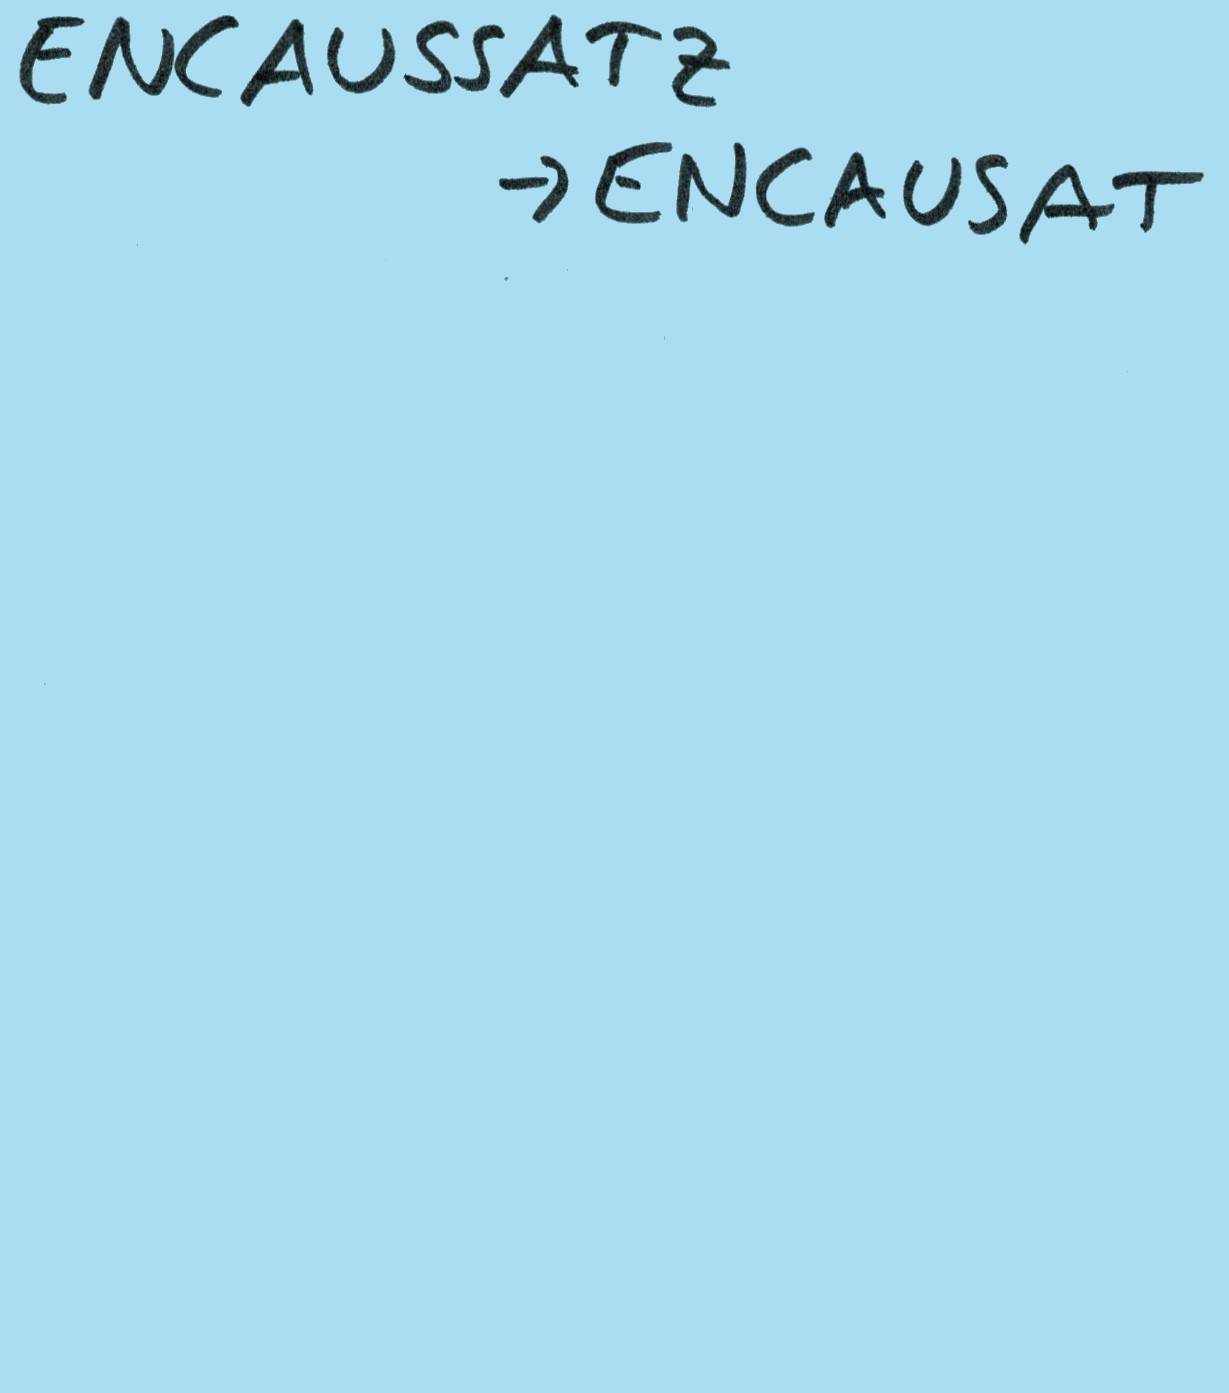 ENCAUSSATZ
→ ENCAUSAT